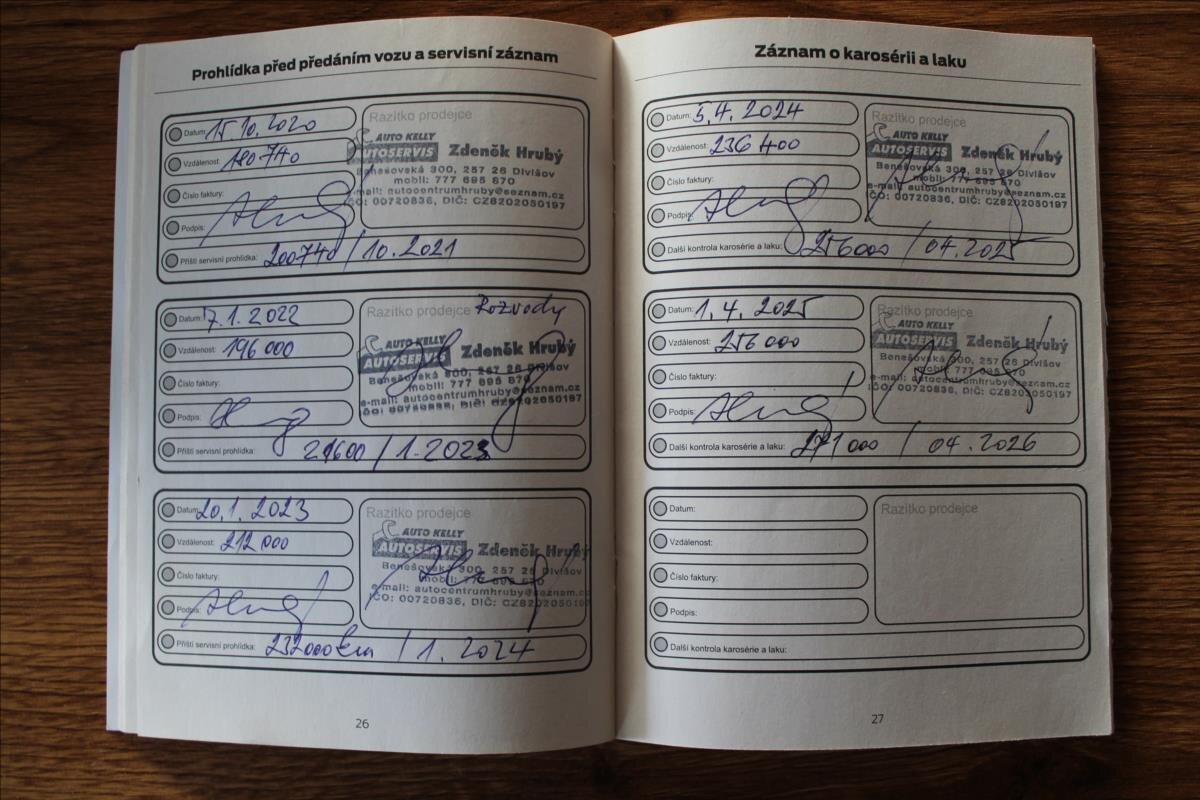 Prohlídka před předáním vozu a servisní záznam
Datum: 15.10.2020
Vzdálenost: 180740
Číslo faktury:
Podpis:
Příští servisní prohlídka: 200740 / 10.2021
Razítko prodejce
AUTO KELLY
AUTOSERVIS Zdeněk Hrubý
Benešovská 300, 257 26 Divišov
mobil: 777 695 870
e-mail: autocentrumhruby@seznam.cz
IČO: 00720836, DIČ: CZ8202050197
Datum: 7.1.2022
Vzdálenost: 196 000
Číslo faktury:
Podpis:
Příští servisní prohlídka: / 1.2023
Razítko prodejce Rozvody
AUTO KELLY
AUTOSERVIS Zdeněk Hrubý
Benešovská 300, 257 26 Divišov
mobil: 777 695 870
e-mail: autocentrumhruby@seznam.cz
IČO: 00720836, DIČ: CZ8202050197
Datum: 20.1.2023
Vzdálenost: 212 000
Číslo faktury:
Podpis:
Příští servisní prohlídka: 232000km / 1.2024
Razítko prodejce
AUTO KELLY
AUTOSERVIS Zdeněk Hrubý
Benešovská 300, 257 26 Divišov
mobil: 777 695 870
e-mail: autocentrumhruby@seznam.cz
IČO: 00720836, DIČ: CZ8202050197
26
Záznam o karosérii a laku
Datum: 5.4.2024
Vzdálenost: 236 400
Číslo faktury:
Podpis:
Další kontrola karosérie a laku: 256000 / 04.2025
Razítko prodejce
AUTO KELLY
AUTOSERVIS Zdeněk Hrubý
Benešovská 300, 257 26 Divišov
mobil: 777 695 870
e-mail: autocentrumhruby@seznam.cz
IČO: 00720836, DIČ: CZ8202050197
Datum: 1.4.2025
Vzdálenost: 256 000
Číslo faktury:
Podpis:
Další kontrola karosérie a laku: 271 000 / 04.2026
Razítko prodejce
AUTO KELLY
AUTOSERVIS Zdeněk Hrubý
Benešovská 300, 257 26 Divišov
mobil: 777 695 870
e-mail: autocentrumhruby@seznam.cz
IČO: 00720836, DIČ: CZ8202050197
Datum:
Vzdálenost:
Číslo faktury:
Podpis:
Další kontrola karosérie a laku:
Razítko prodejce
27